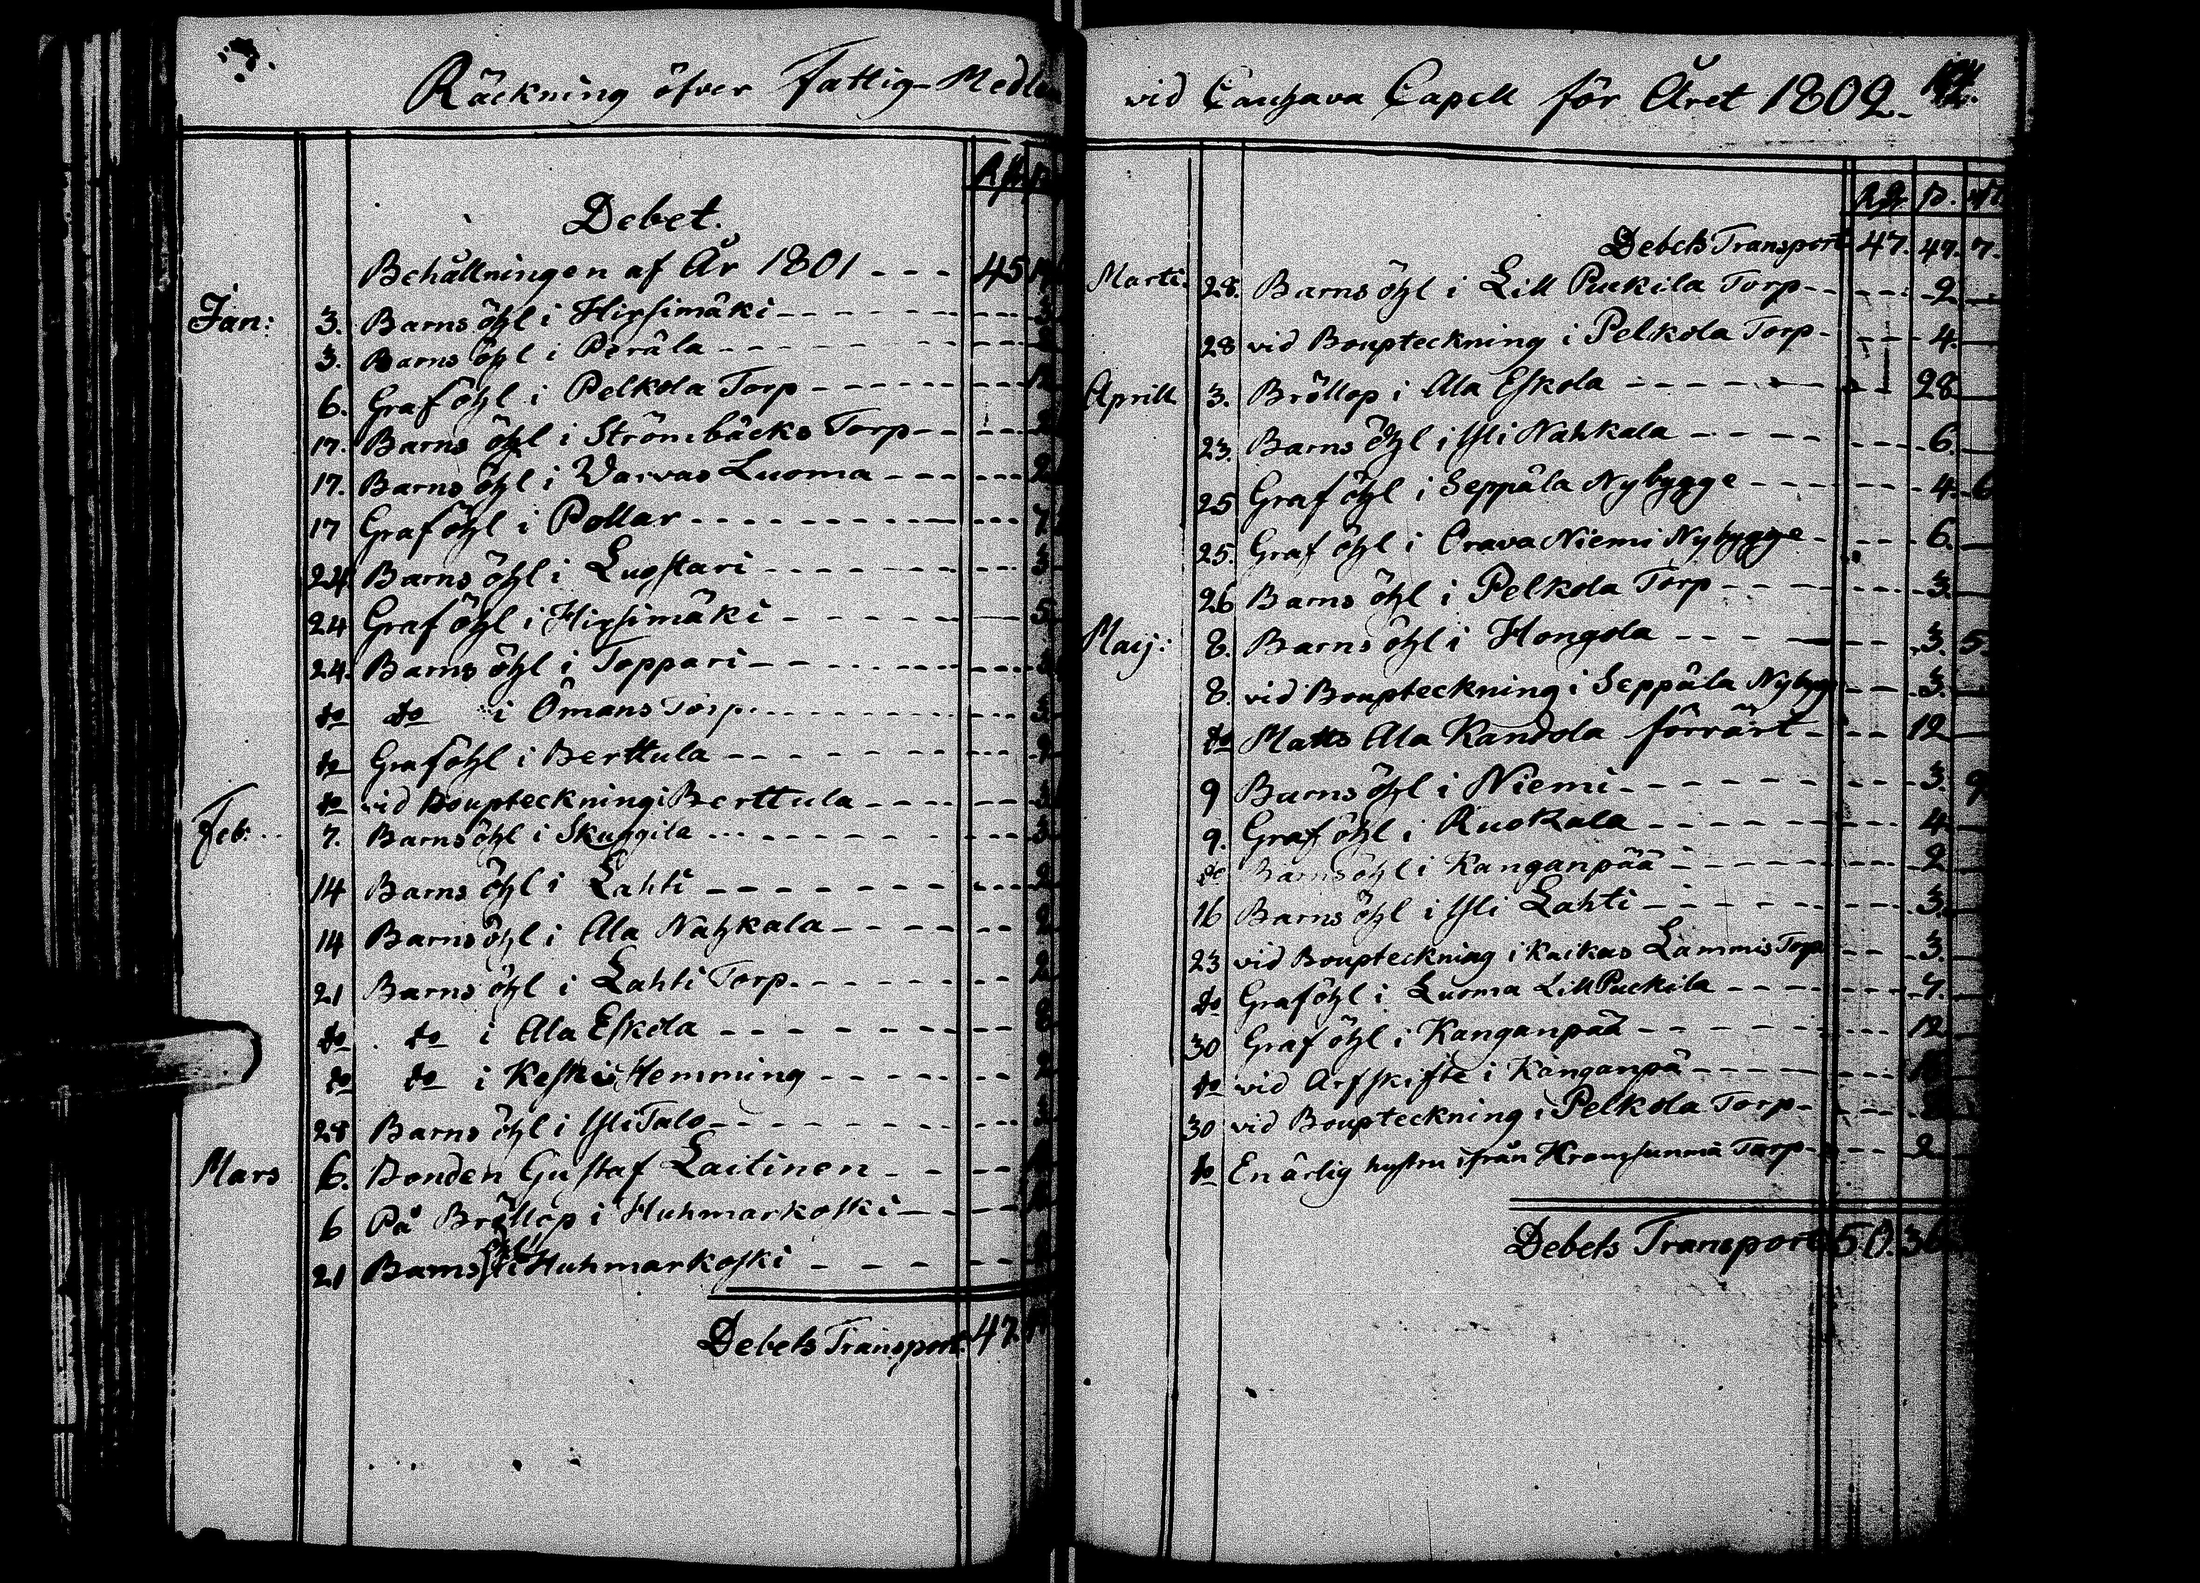 Räckning öfver Fattig-Medlen
Debet.
Behållningen af År 1801 - - - 45
Jan: 3. Barns öhl i Hirsimäki - - - 3
3. Barns öhl i Peräla - - -
6. Graf öhl i Pelkola Torp - - - 12
17. Barns öhl i Strömbäcks Torp - - - 2
17. Barns öhl i Varvas Luoma - - - 2
17 Graföhl i Pollar - - - 7
24 Barns öhl i Luostari - - - 3
24 Graf öhl i Hirsimäki - - - 5
24. Barns öhl i Toppari - - - 3
do do i Ömans Torp. - - - 3
do Graföhl i Berttula - - -
do vid Boupteckning i Berttula - - - 3
Feb: 7. Barns öhl i Skuggila - - - 3
14 Barns öhl i Lahti - - - 2
14 Barns öhl i Ala Nahkala - - - 2
21 Barns öhl i Lahti Torp. - - - 2
do do i Ala Eskola - - - 8
do do i Keski Hemming - - - 2
28 Barns öhl i Yli Talo - - - 3
Mars 6. Bonden Gustaf Laitinen - - -
6 På Bröllop i Huhmarkoski - - -
21 Barns öhl i Huhmarkoski - - -
Debets Transport. 47
vid Cauhava Capell för Året 1802.
Rdr. s. rst
Debets Transport 47. 47. 7.
Martii. 28. Barns öhl i Lill Puckila Torp - - - 2
28 vid Boupteckning i Pelkola Torp - - - 4.
Aprill 3. Bröllop i Ala Eskola - - - 28
23. Barns öhl i Yli Nahkala - - - 6.
25 Graf öhl i Seppäla Nybygge - - - 4. 6
25. Graf öhl i Orava Niemi Nybygge - - - 6.
26 Barns öhl i Pelkola Torp - - - 3.
Maij: 8. Barns öhl i Hongola - - - 3. 5.
8. vid Boupteckning i Seppäla Nybygg - - - 3.
do Matts Ala Kandola förrärt - - - 12
9 Barns öhl i Niemi - - - 3. 9
9. Graf öhl i Ruokala - - - 4
do Barns öhl i Kanganpää - - - 2
16 Barns öhl i Yli Lahti - - - 3.
23 vid Boupteckning i Kaikas Lammis Torp - - - 3.
do Graföhl i Luoma Lill Puckila - - - 7.
30 Graf öhl i Kanganpää - - - 12
do vid Arfskifte i Kanganpä - - -
30 vid Boupteckning i Pelkola Torp - - -
do En ärlig hustru ifrån Torp - - - 2
Debets Transport 50. 36